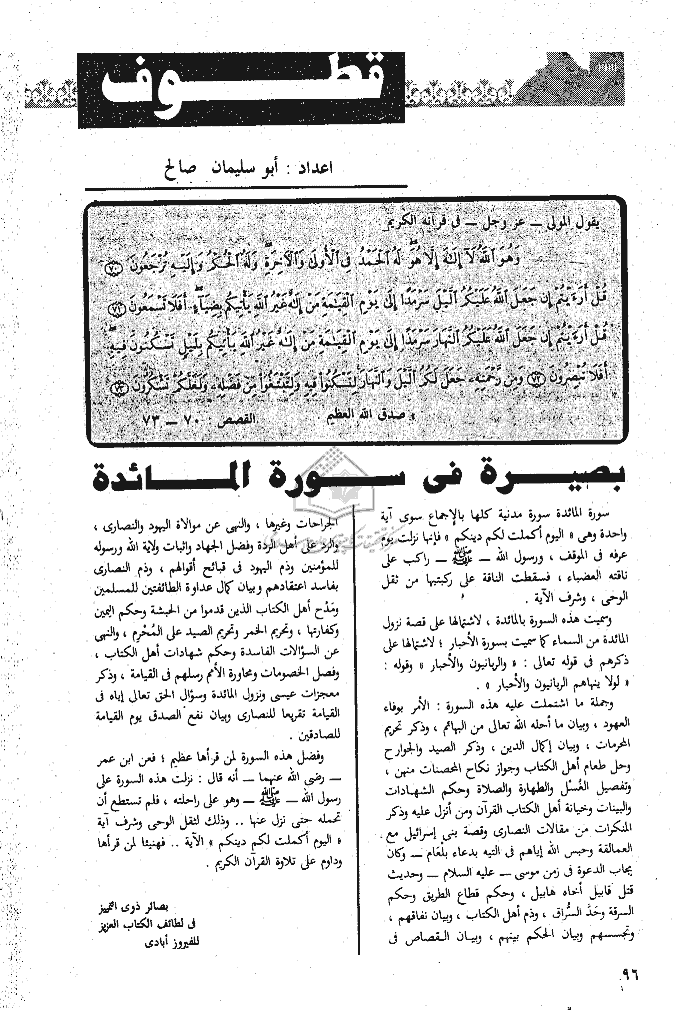 قطوف
اعداد : أبو سليمان صالح
يقول المولى ــ عز وجل ــ فى قرآنه الكريم
وَهُوَ ٱللَّهُ لَآ إِلَٰهَ إِلَّا هُوَ لَهُ ٱلْحَمْدُ فِى ٱلْأُولَىٰ وَٱلْأَخِرَةِ وَلَهُ ٱلْحُكْمُ وَإِلَيْهِ تُرْجَعُونَ ﴿٧٠﴾
قُلْ أَرَءَيْتُمْ إِن جَعَلَ ٱللَّهُ عَلَيْكُمُ ٱلَّيْلَ سَرْمَدًا إِلَىٰ يَوْمِ ٱلْقِيَٰمَةِ مَنْ إِلَٰهٌ غَيْرُ ٱللَّهِ يَأْتِيكُم بِضِيَآءٍ أَفَلَا تَسْمَعُونَ ﴿٧١﴾
قُلْ أَرَءَيْتُمْ إِن جَعَلَ ٱللَّهُ عَلَيْكُمُ ٱلنَّهَارَ سَرْمَدًا إِلَىٰ يَوْمِ ٱلْقِيَٰمَةِ مَنْ إِلَٰهٌ غَيْرُ ٱللَّهِ يَأْتِيكُم بِلَيْلٍ تَسْكُنُونَ فِيهِ
أَفَلَا تُبْصِرُونَ ﴿٧٢﴾ وَمِن رَّحْمَتِهِۦ جَعَلَ لَكُمُ ٱلَّيْلَ وَٱلنَّهَارَ لِتَسْكُنُوا۟ فِيهِ وَلِتَبْتَغُوا۟ مِن فَضْلِهِۦ وَلَعَلَّكُمْ تَشْكُرُونَ ﴿٧٣﴾
« صدق الله العظيم القصص : ٧٠ ــ ٧٣
بصيرة فى سورة المائدة
سورة المائدة سورة مدنية كلها بالإجماع سوى آية
واحدة وهى « اليوم أكملت لكم دينكم » فإنها نزلت يوم
عرفه فى الموقف ، ورسول الله ــ ﷺ ــ راكب على
ناقته العضباء ، فسقطت الناقة على ركبتيها من ثقل
الوحى ، وشرف الآية .
وسميت هذه السورة بالمائدة ، لاشتمالها على قصة نزول
المائدة من السماء كما سميت بسورة الأحبار ؛ لاشتمالها على
ذكرهم فى قوله تعالى : « والربانيون والأحبار » وقوله :
« لولا ينهاهم الربانيون والأحبار » .
وجملة ما اشتملت عليه هذه السورة : الأمر بوفاء
العهود ، وبيان ما أحله الله تعالى من البهائم ، وذكر تحريم
المحرمات ، وبيان إكمال الدين ، وذكر الصيد والجوارح
وحل طعام أهل الكتاب وجواز نكاح المحصنات منهن ،
وتفصيل الغُسْل والطهارة والصلاة وحكم الشهادات
والبينات وخيانة أهل الكتاب القرآن ومن أنزل عليه وذكر
المنكرات من مقالات النصارى وقصة بنى إسرائيل مع
العمالقة وحبس الله إياهم فى التيه بدعاء بلْعَام ــ وكان
يجاب الدعوة فى زمن موسى ــ عليه السلام ــ وحديث
قتل قابيل أخاه هابيل ، وحكم قطاع الطريق وحكم
السرقة وحَدّ السُّراق ، وذم أهل الكتاب ، وبيان نفاقهم ،
وتجسسهم وبيان الحكم بينهم ، وبيان القصاص فى
الجراحات وغيرها ، والنهى عن موالاة اليهود والنصارى ،
والرد على أهل الردة وفضل الجهاد واثبات ولاية الله ورسوله
للمؤمنين وذم اليهود فى قبائح أقوالهم ، وذم النصارى
بفاسد اعتقادهم وبيان كمال عداوة الطائفتين للمسلمين
ومَدْح أهل الكتاب الذين قدموا من الحبشة وحكم اليمين
وكفارتها ، وتحريم الخمر وتحريم الصيد على المُحْرِم ، والنهى
عن السؤالات الفاسدة وحكم شهادات أهل الكتاب ،
وفصل الخصومات ومحاورة الأمم رسلهم فى القيامة ، وذكر
معجزات عيسى ونزول المائدة وسؤال الحق تعالى إياه فى
القيامة تقريعا للنصارى وبيان نفع الصدق يوم القيامة
للصادقين .
وفضل هذه السورة لمن قرأها عظيم ؛ فعن ابن عمر
ــ رضى الله عنهما ــ أنه قال : نزلت هذه السورة على
رسول الله ــ ﷺ ــ وهو على راحلته ، فلم تستطع أن
تحمله حتى نزل عنها .. وذلك لثقل الوحى وشرف آية
« اليوم أكملت لكم دينكم » الآية .. فهنيئا لمن قرأها
وداوم على تلاوة القرآن الكريم .
بصائر ذوى التمييز
فى لطائف الكتاب العزيز
للفيروز أبادى
٩٦